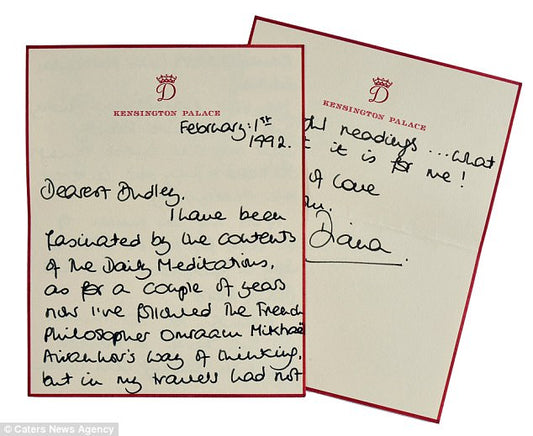 D
KENSINGTON PALACE
February: 1st
1992.
Dearest Dudley.
I have been
fasinated by the contents
of the Daily Meditations,
as for a couple of years
now I've followed the French
Philosopher Omraam Mikhaë
Aivanhov's way of thinking,
but in my travels had not
D
KENSINGTON PALACE
readings ... what
it is for me!
of love
Diana
© Caters News Agency